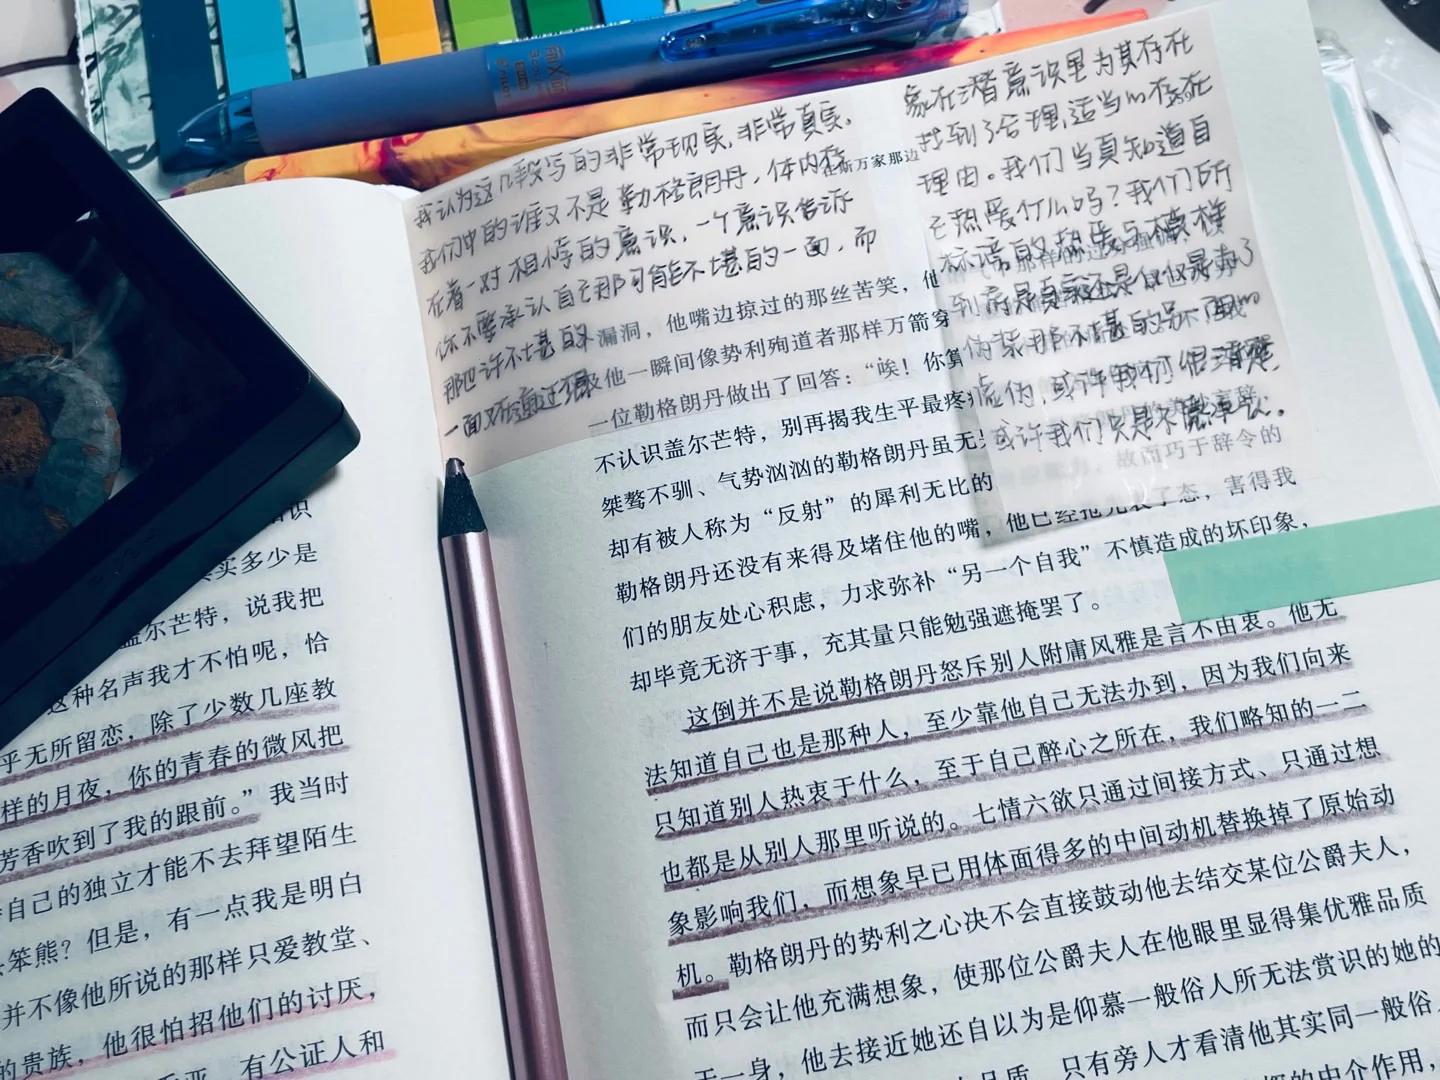 我认为这几段写的非常现实,非常真实,
我们中的谁又不是勒格朗丹,体内存
在着一对相悖的意识,一个意识告诉
你不要承认自己那可能不堪的一面,而
那也许不堪的
一面又在通过想
象在潜意识里为其存在
找到了合理,适当的存在
理由。我们当真知道自
己热爱什么吗?我们所
虚伪,或许我们很清楚,
或许我们只是不愿承认。
在斯万家那边
漏洞,他嘴边掠过的那丝苦笑,他
他一瞬间像势利殉道者那样万箭穿
一位勒格朗丹做出了回答:“唉!你算
不认识盖尔芒特,别再揭我生平最疼
桀骜不驯、气势汹汹的勒格朗丹虽无
却有被人称为“反射”的犀利无比的
故而巧于辞令的
勒格朗丹还没有来得及堵住他的嘴,他已经
态,害得我
们的朋友处心积虑,力求弥补“另一个自我”不慎造成的坏印象,
却毕竟无济于事,充其量只能勉强遮掩罢了。
这倒并不是说勒格朗丹怒斥别人附庸风雅是言不由衷。他无
法知道自己也是那种人,至少靠他自己无法办到,因为我们向来
只知道别人热衷于什么,至于自己醉心之所在,我们略知的一二
也都是从别人那里听说的。七情六欲只通过间接方式、只通过想
象影响我们,而想象早已用体面得多的中间动机替换掉了原始动
机。勒格朗丹的势利之心决不会直接鼓动他去结交某位公爵夫人,
而只会让他充满想象,使那位公爵夫人在他眼里显得集优雅品质
于一身,他去接近她还自以为是仰慕一般俗人所无法赏识的她的
品质,只有旁人才看清他其实同一般俗
的中介作用,
识
买多少是
盖尔芒特,说我把
这种名声我才不怕呢,恰
乎无所留恋,除了少数几座教
样的月夜,你的青春的微风把
芳香吹到了我的跟前。”我当时
自己的独立才能不去拜望陌生
笨熊?但是,有一点我是明白
并不像他所说的那样只爱教堂、
的贵族,他很怕招他们的讨厌,
有公证人和